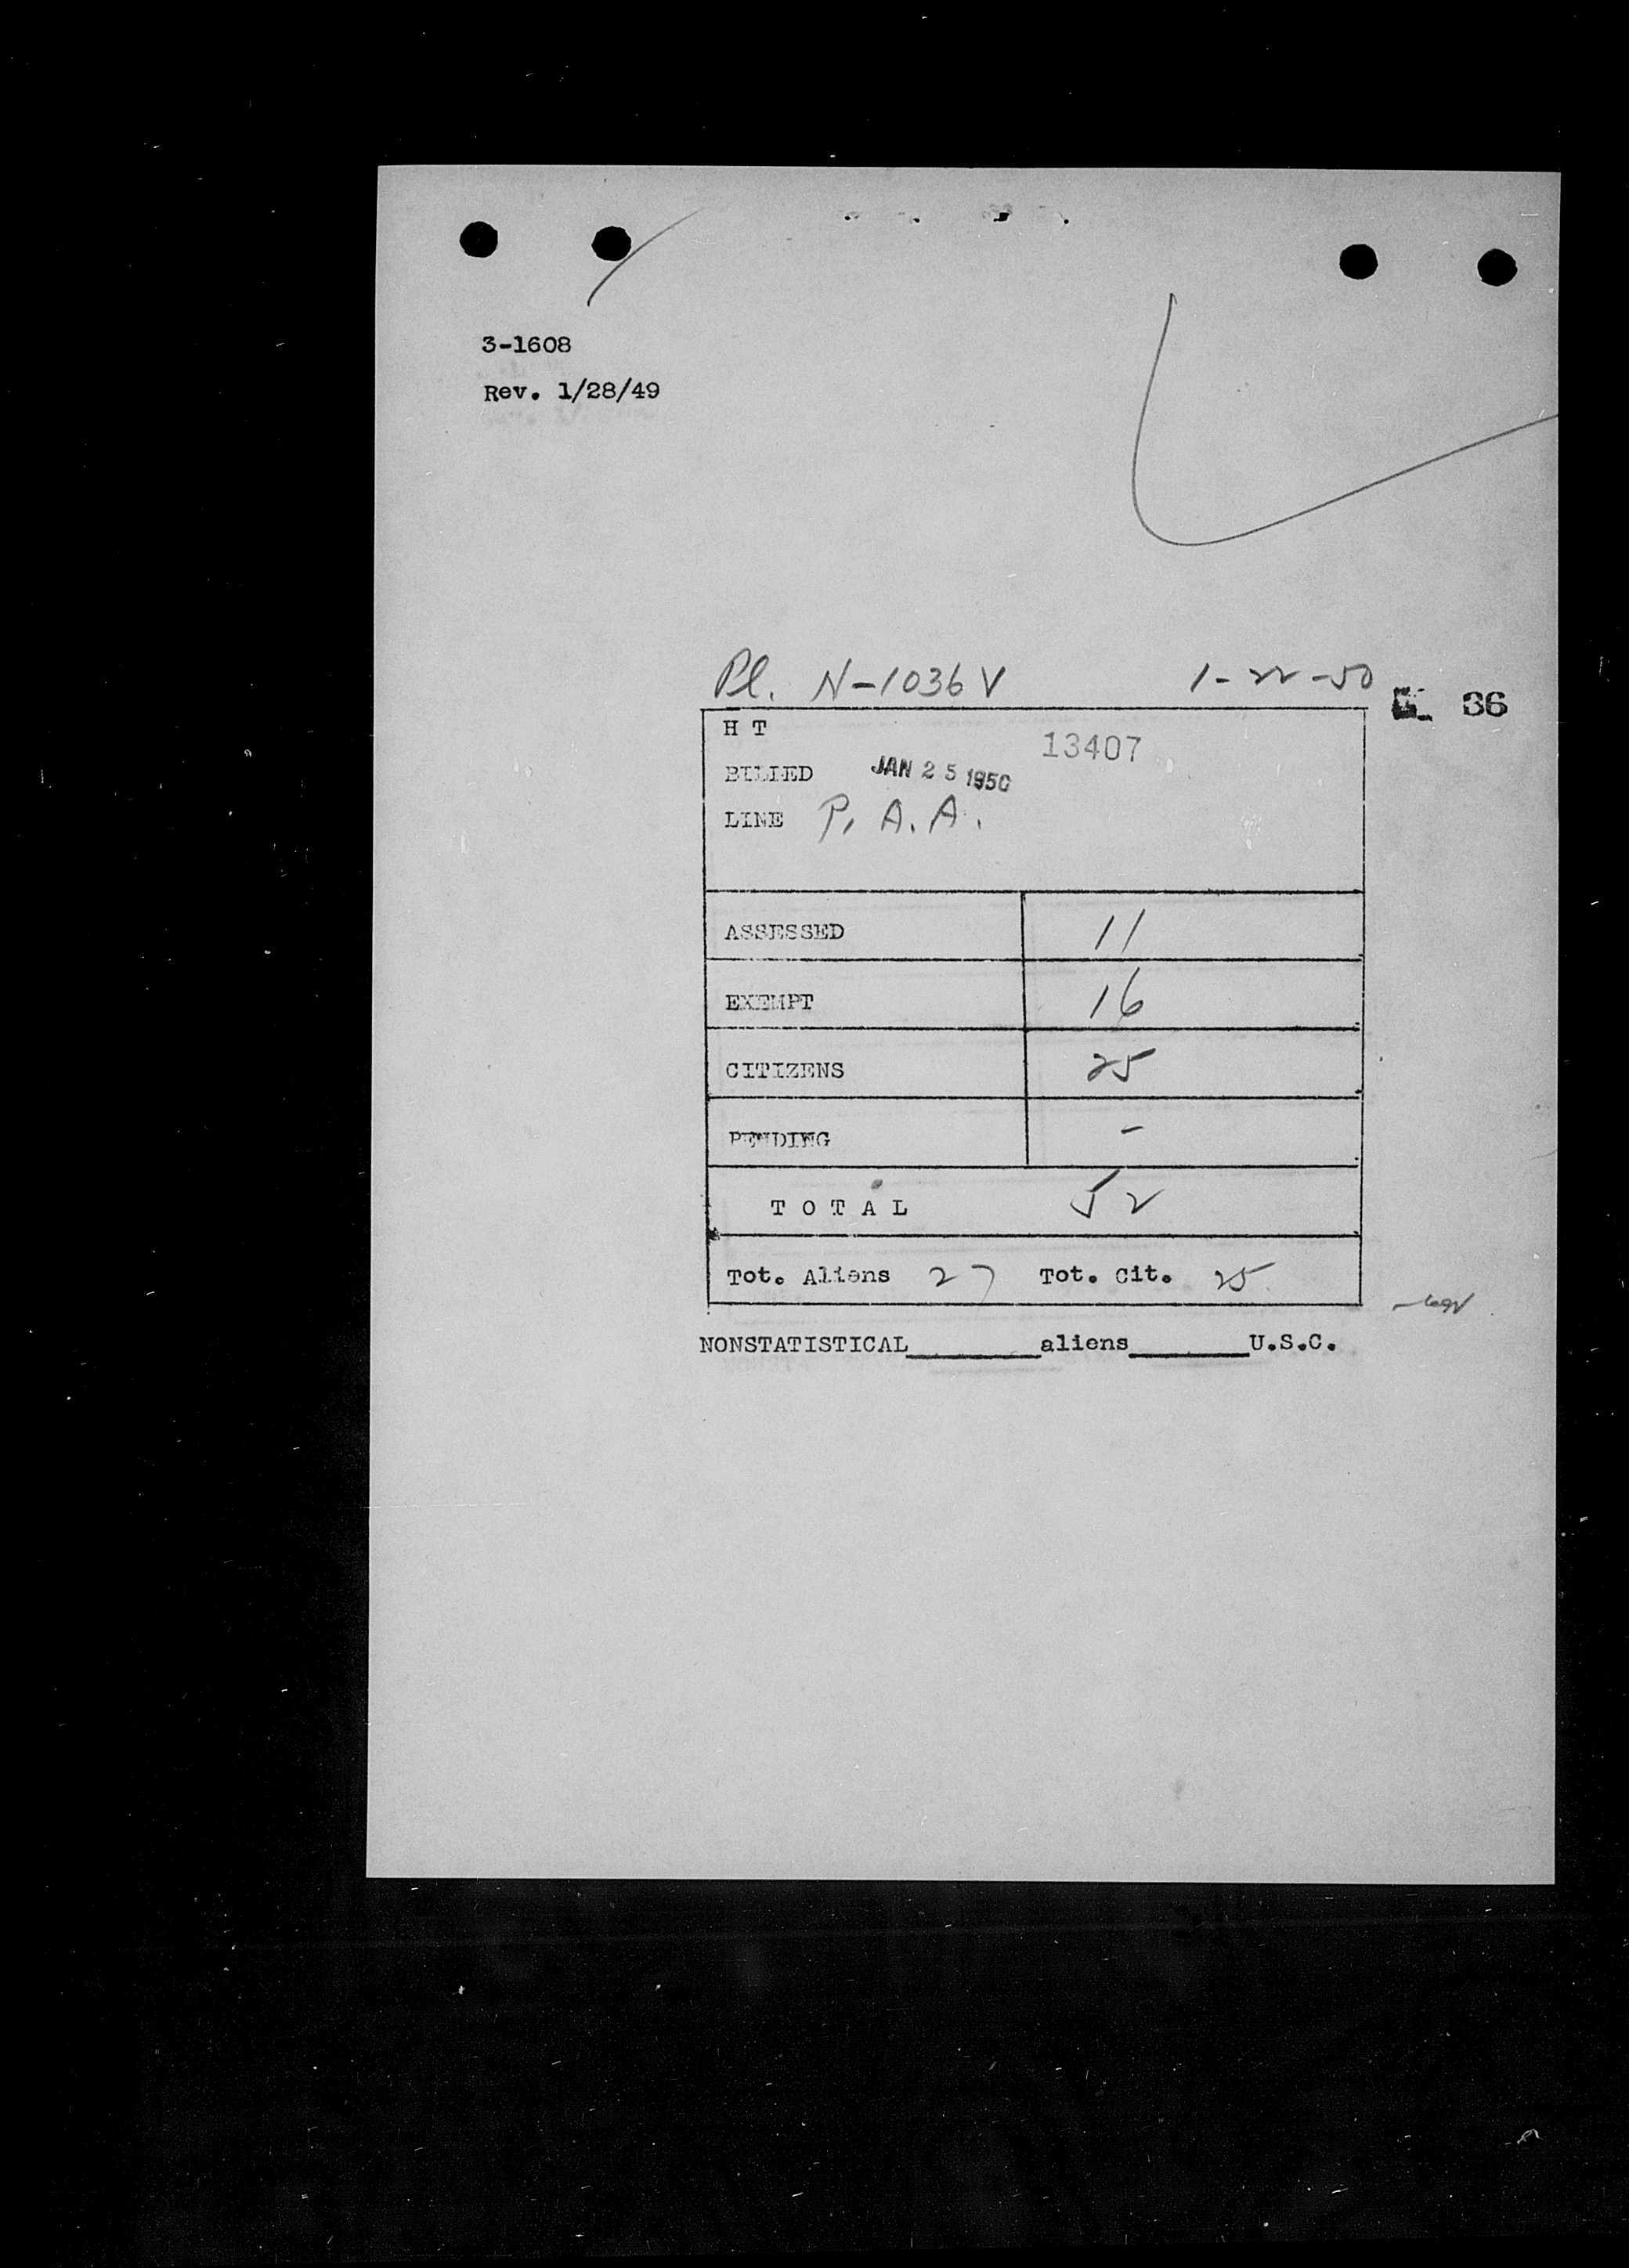 3-1608
Rev. 1/28/49
Pl. N-1036V 1-22-50
36
H T
13407
BILLED JAN 25 1950
LINE P. A. A.
ASSESSED 11
EXEMPT 16
CITIZENS 25
PENDING -
T O T A L 52
Tot. Aliens 27 Tot. Cit. 25
NONSTATISTICAL________aliens_______U.S.C.